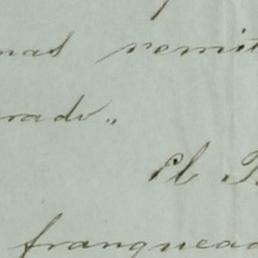 mas remit
rado"
El P
franquead